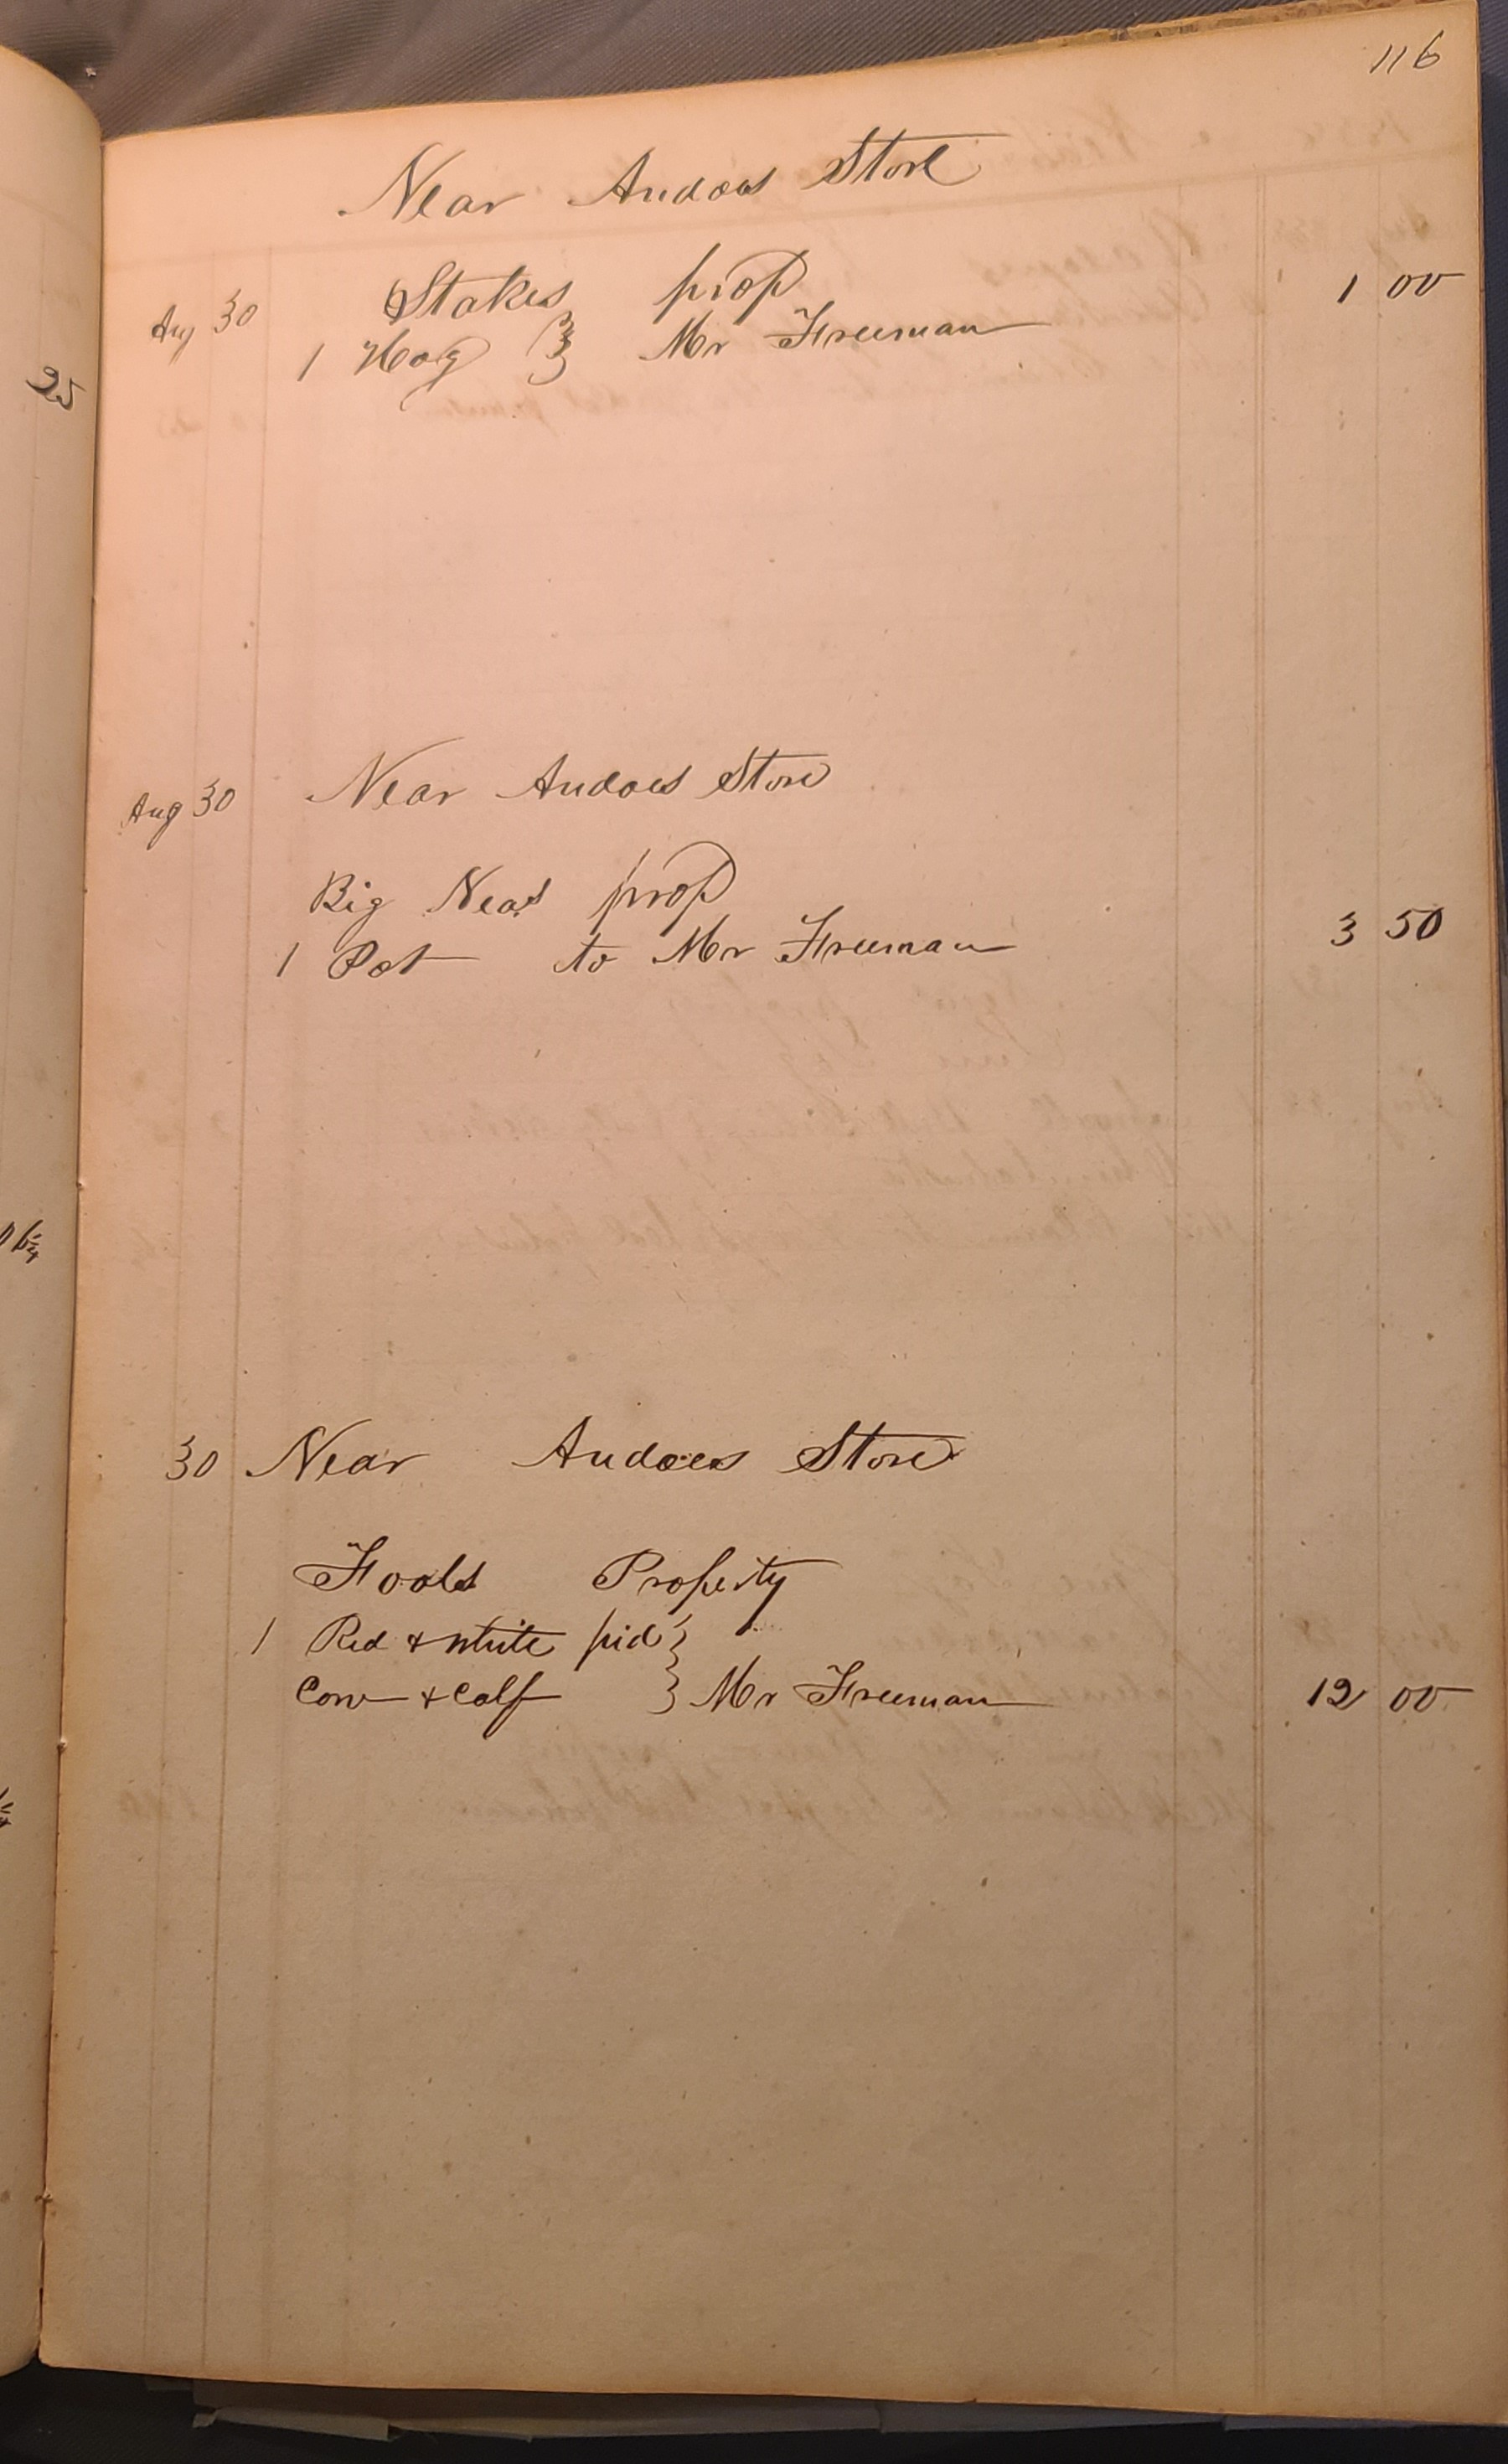 116
Near Andoes Store
Aug 30 Stakes prop 1 00
1 Hog } Mr Freeman
25
Aug 30 Near Andoes Store
Big Neas prop
1 Pot to Mr Freeman 3 50
30 Near Andoes Store
Fools Property
1 Red & white pid }
Cow & Calf } Mr Freeman 12 00